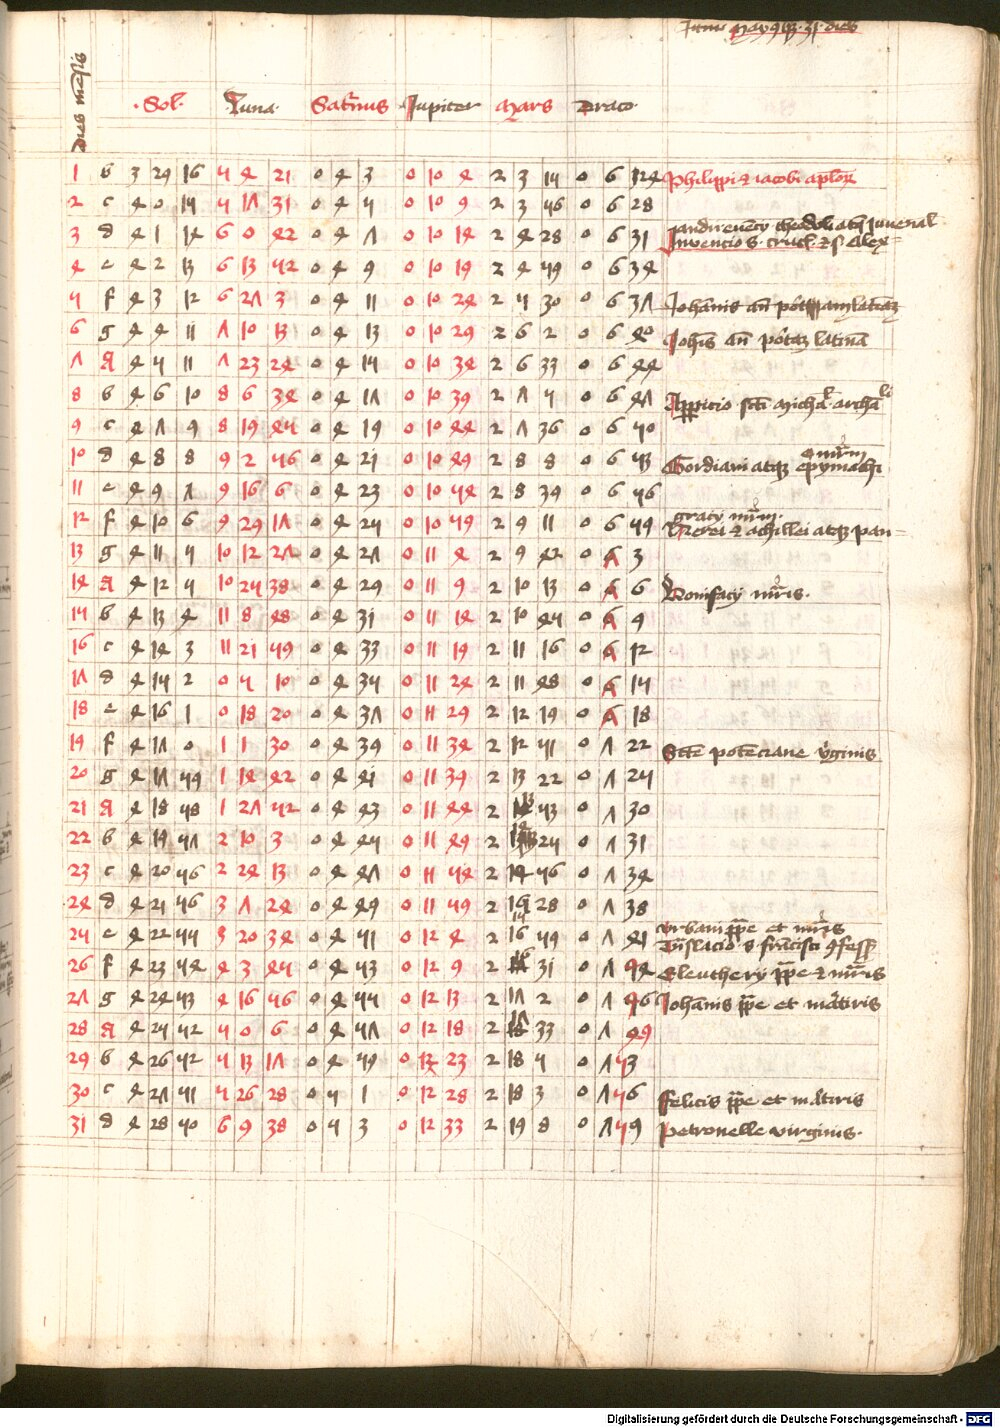 Juni may9 hz 31 dies
dies mensis
Sol Luna Saturnus Jupiter Mars Draco
1 b 3 29 16 5 4 21 0 4 3 0 10 4 2 3 15 0 6 24 Philippi et iacobi aplor
2 c 4 0 15 5 17 31 0 4 5 0 10 9 2 3 56 0 6 28
3 d 4 1 14 6 0 42 0 4 7 0 10 14 2 4 28 0 6 31 theodoli atq Juvenal
Inventio s crucis et s Alex
4 e 4 2 13 6 13 52 0 4 9 0 10 19 2 4 59 0 6 34
5 f 4 3 12 6 27 3 0 4 11 0 10 24 2 5 30 0 6 37 Johannis an port latinam
6 g 4 4 11 7 10 13 0 4 13 0 10 29 2 6 2 0 6 40 Johis an portam latina
7 A 4 5 11 7 23 24 0 4 15 0 10 34 2 6 33 0 6 44
8 b 4 6 10 8 6 34 0 4 17 0 10 39 2 7 5 0 6 47 Apparicio scti michal archali
9 c 4 7 9 8 19 45 0 4 19 0 10 44 2 7 36 0 6 50
10 d 4 8 8 9 2 56 0 4 21 0 10 49 2 8 8 0 6 53 Gordiani atq epymachi
11 e 4 9 7 9 16 6 0 4 23 0 10 54 2 8 39 0 6 56
12 f 4 10 6 9 29 17 0 4 25 0 10 59 2 9 11 0 6 59 Nerei et achillei atq pan-
graty
13 g 4 11 5 10 12 27 0 4 27 0 11 4 2 9 42 0 7 3
14 A 4 12 5 10 25 38 0 4 29 0 11 9 2 10 13 0 7 6 Bonifacy mris
15 b 4 13 4 11 8 48 0 4 31 0 11 14 2 10 45 0 7 9
16 c 4 14 3 11 21 59 0 4 33 0 11 19 2 11 16 0 7 12
17 d 4 15 2 0 5 10 0 4 35 0 11 24 2 11 48 0 7 15
18 e 4 16 1 0 18 20 0 4 37 0 11 29 2 12 19 0 7 18
19 f 4 17 0 1 1 30 0 4 39 0 11 34 2 12 51 0 7 22 Scte potenciane virginis
20 g 4 17 59 1 14 42 0 4 41 0 11 39 2 13 22 0 7 25
21 A 4 18 58 1 27 52 0 4 43 0 11 44 2 13 53 0 7 30
22 b 4 19 57 2 10 3 0 4 45 0 11 49 2 13 25 0 7 31
23 c 4 20 56 2 24 13 0 4 47 0 11 54 2 14 56 0 7 34
24 d 4 21 56 3 7 24 0 4 49 0 11 59 2 15 28 0 7 38
25 e 4 22 55 3 20 34 0 4 51 0 12 4 2 16 59 0 7 41 Urbani ppe et mris
Translacio s francisci
26 f 4 23 54 4 3 45 0 4 53 0 12 9 2 16 31 0 7 44 Eleuthery ppe et mris
27 g 4 24 53 4 16 56 0 4 55 0 12 13 2 17 2 0 7 46 Johannis ppe et martiris
28 A 4 25 52 5 0 6 0 4 57 0 12 18 2 17 33 0 7 49
29 b 4 26 52 5 13 17 0 4 59 0 12 23 2 18 5 0 7 53
30 c 4 27 51 5 26 28 0 5 1 0 12 28 2 18 3 0 7 56 Felicis ppe et martiris
31 d 4 28 50 6 9 38 0 5 3 0 12 33 2 19 8 0 7 59 Petronelle virginis
Digitalisierung gefördert durch die Deutsche Forschungsgemeinschaft - DFG